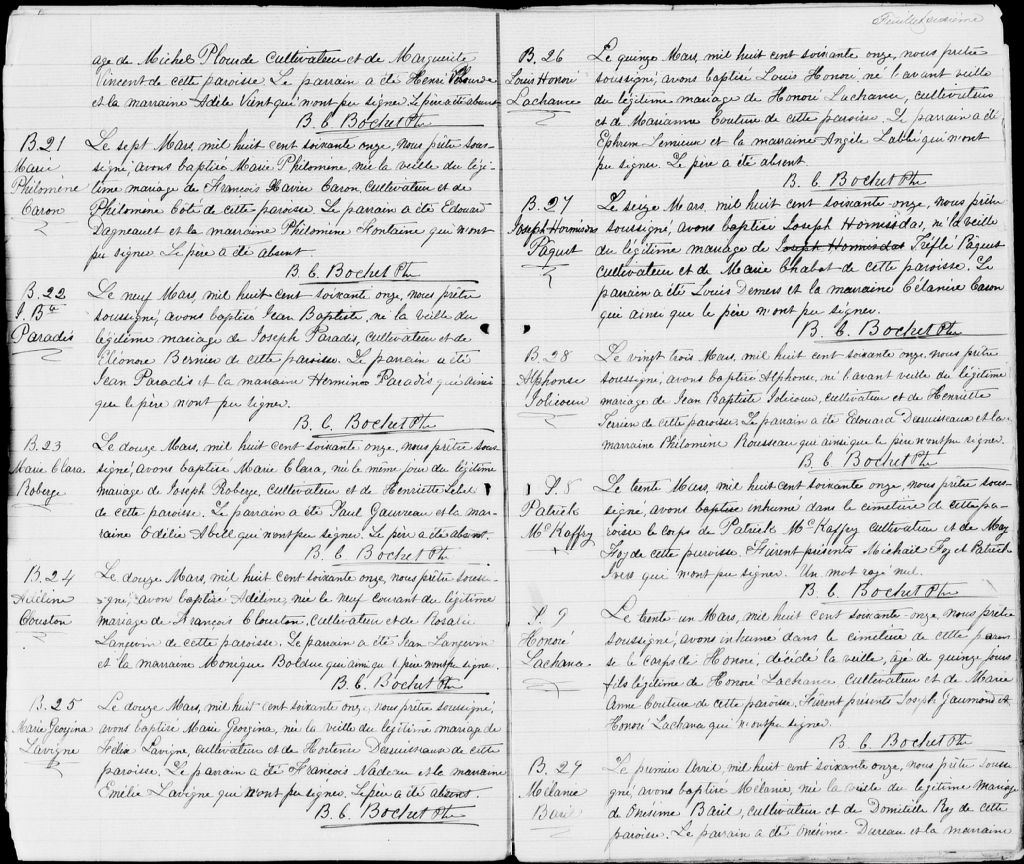 age de Michel Plourde Cultivateur et de Marguerite
Vincent de cette paroisse. Le parrain a été Henri Plourde
et la marraine Adèle Vient qui n'ont pu signer. Le père a été absent
B. C. Bochet Ptre
B. 21
Marie
Philomène
Caron
Le sept Mars, mil huit cent soixante onze, nous prêtre sous-
signé, avons baptisé Marie Philomine, née la veille du légi-
time mariage de François Xavier Caron, Cultivateur et de
Philomène Côté de cette paroisse. Le parrain a été Edouard
Dagneault et la marraine Philomène Fontaine qui n'ont
pu signer. Le père a été absent
B. C. Bochet Ptre
B. 22
J. Bte
Paradis
Le neuf Mars, mil huit cent soixante onze, nous prêtre
soussigné, avons baptisé Jean Baptiste, né la veille du
légitime mariage de Joseph Paradis, cultivateur et de
Eléonore Bernier de cette paroisse. Le parrain a été
Jean Paradis et la marraine Hermine Paradis qui ainsi
que le père n'ont pu signer.
B. C. Bochet Ptre
B. 23
Marie Clara
Roberge
Le douze Mars, mil huit cent soixante onze, nous prêtre sous-
signé, avons baptisé Marie Clara, née le même jour du légitime
mariage de Joseph Roberge, cultivateur et de Henriette Lebel
de cette paroisse. Le parrain a été Paul Gauvreau et la mar-
raine Odélie Abell qui n'ont pu signer. Le père a été absent.
B. C. Bochet Ptre
B. 24
Adéline
Clouston
Le douze Mars, mil huit cent soixante onze, nous prêtre soussi-
gné, avons baptisé Adéline, née le neuf courant du légitime
mariage de François Clouston, Cultivateur et de Rosalie
Langevin de cette paroisse. Le parrain a été Jean Langevin
et la marraine Monique Bolduc qui ainsi qu le père n'ont pu signer.
B. C. Bochet Ptre
B. 25
Marie Georgina
Lavigne
Le douze Mars, mil huit cent soixante onze, nous prêtre soussigné,
avons baptisé Marie Georgina, née la veille du légitime mariage de
Félix Lavigne, cultivateur et de Hortence Desruisseaux de cette
paroisse. Le parrain a été François Nadeau et la marraine
Emélie Lavigne qui n'ont pu signer. Le père a été absent.
B. C. Bochet Ptre
Feuillet
B. 26
Louis Honoré
Lachance
Le quinze Mars, mil huit cent soixante onze, nous prêtre
soussigné, avons baptisé Louis Honoré, né l'avant veille
du légitime mariage de Honoré Lachance, cultivateur
et de Marianne Couture de cette paroisse. Le parrain a été
Ephrem Lemieux et la marraine Angèle Labbé qui n'ont
pu signer. Le père a été absent
B. C. Bochet Ptre
B. 27
Joseph Hormisdas
Paquet
Le seize Mars, mil huit cent soixante onze, nous prêtre
soussigné, avons baptisé Joseph Hormisdas, né la veille
du légitime mariage de Joseph Hormisdas Tréflé Pâquet
cultivateur et de Marie Chabot de cette paroisse. Le
parrain a été Louis Demers et la marraine Célanire Caron
qui ainsi que le père n'ont pu signer.
B. C. Bochet Ptre
B. 28
Alphonse
Jolicoeur
Le vingt trois Mars, mil huit cent soixante onze, nous prêtre
soussigné, avons baptisé Alphonse, né l'avant veille du légitime
mariage de Jean Baptiste Jolicoeur, cultivateur et de Henriette
Terrien de cette paroisse. Le parrain a été Edouard Desruisseaux et la
marraine Philomène Rousseau qui ainsi que le père n'ont pu signer.
B. C. Bochet Ptre
S. 8
Patrick
Mc Kaffry
Le trente Mars, mil huit cent soixante onze, nous prêtre sous-
signé, avons baptisé inhumé dans le cimetière de cette pa-
roisse le corps de Patrick Mc Kaffry cultivateur et de May
Foy de cette paroisse. Furent présents Michail Foy et Patrick
Ivers qui n'ont pu signer. Un mot rayé nul.
B. C. Bochet Ptre
S. 9
Honoré
Lachance
Le trente un Mars, mil huit cent soixante-onze, nous prêtre
soussigné, avons inhumé dans le cimetière de cette parois-
se le corps de Honoré, décédé la veille, âgé de quinze jours
fils légitime de Honoré Lachance cultivateur et de Marie
Anne Couture de cette paroisse. Furent présents Joseph Gaumond et
Honoré Lachance qui n'ont pu signer.
B. C. Bochet Ptre
B. 29
Mélanie
Baril
Le premier Avril, mil huit cent soixante onze, nous prêtre soussi-
gné, avons baptisé Mélanie, née la veille du légitime mariage
de Onésime Baril, cultivateur et de Domitilde Roy de cette
paroisse. Le parrain a été Onésime Dureau et la marraine